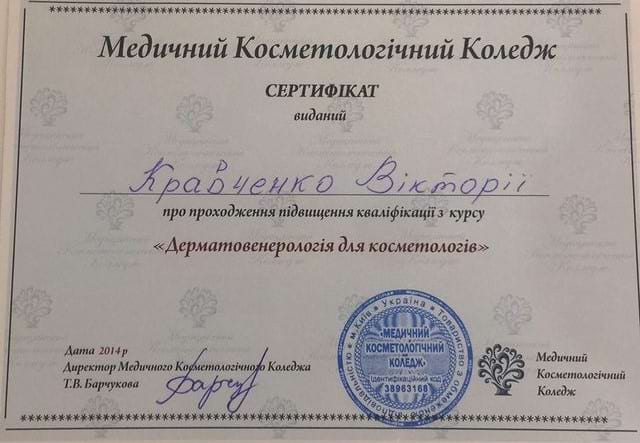 Медичний Косметологічний Коледж
СЕРТИФІКАТ
виданий
Кравченко Вікторії
про проходження підвищення кваліфікації з курсу
«Дерматовенерологія для косметологів»
Дата 2014 р
Директор Медичного Косметологічного Коледжа
Т.В. Барчукова
м. Київ * Україна * Товариство з обмеженою відповідальністю *
«МЕДИЧНИЙ
КОСМЕТОЛОГІЧНИЙ
КОЛЕДЖ»
Ідентифікаційний код
38963168
Медичний
Косметологічний
Коледж